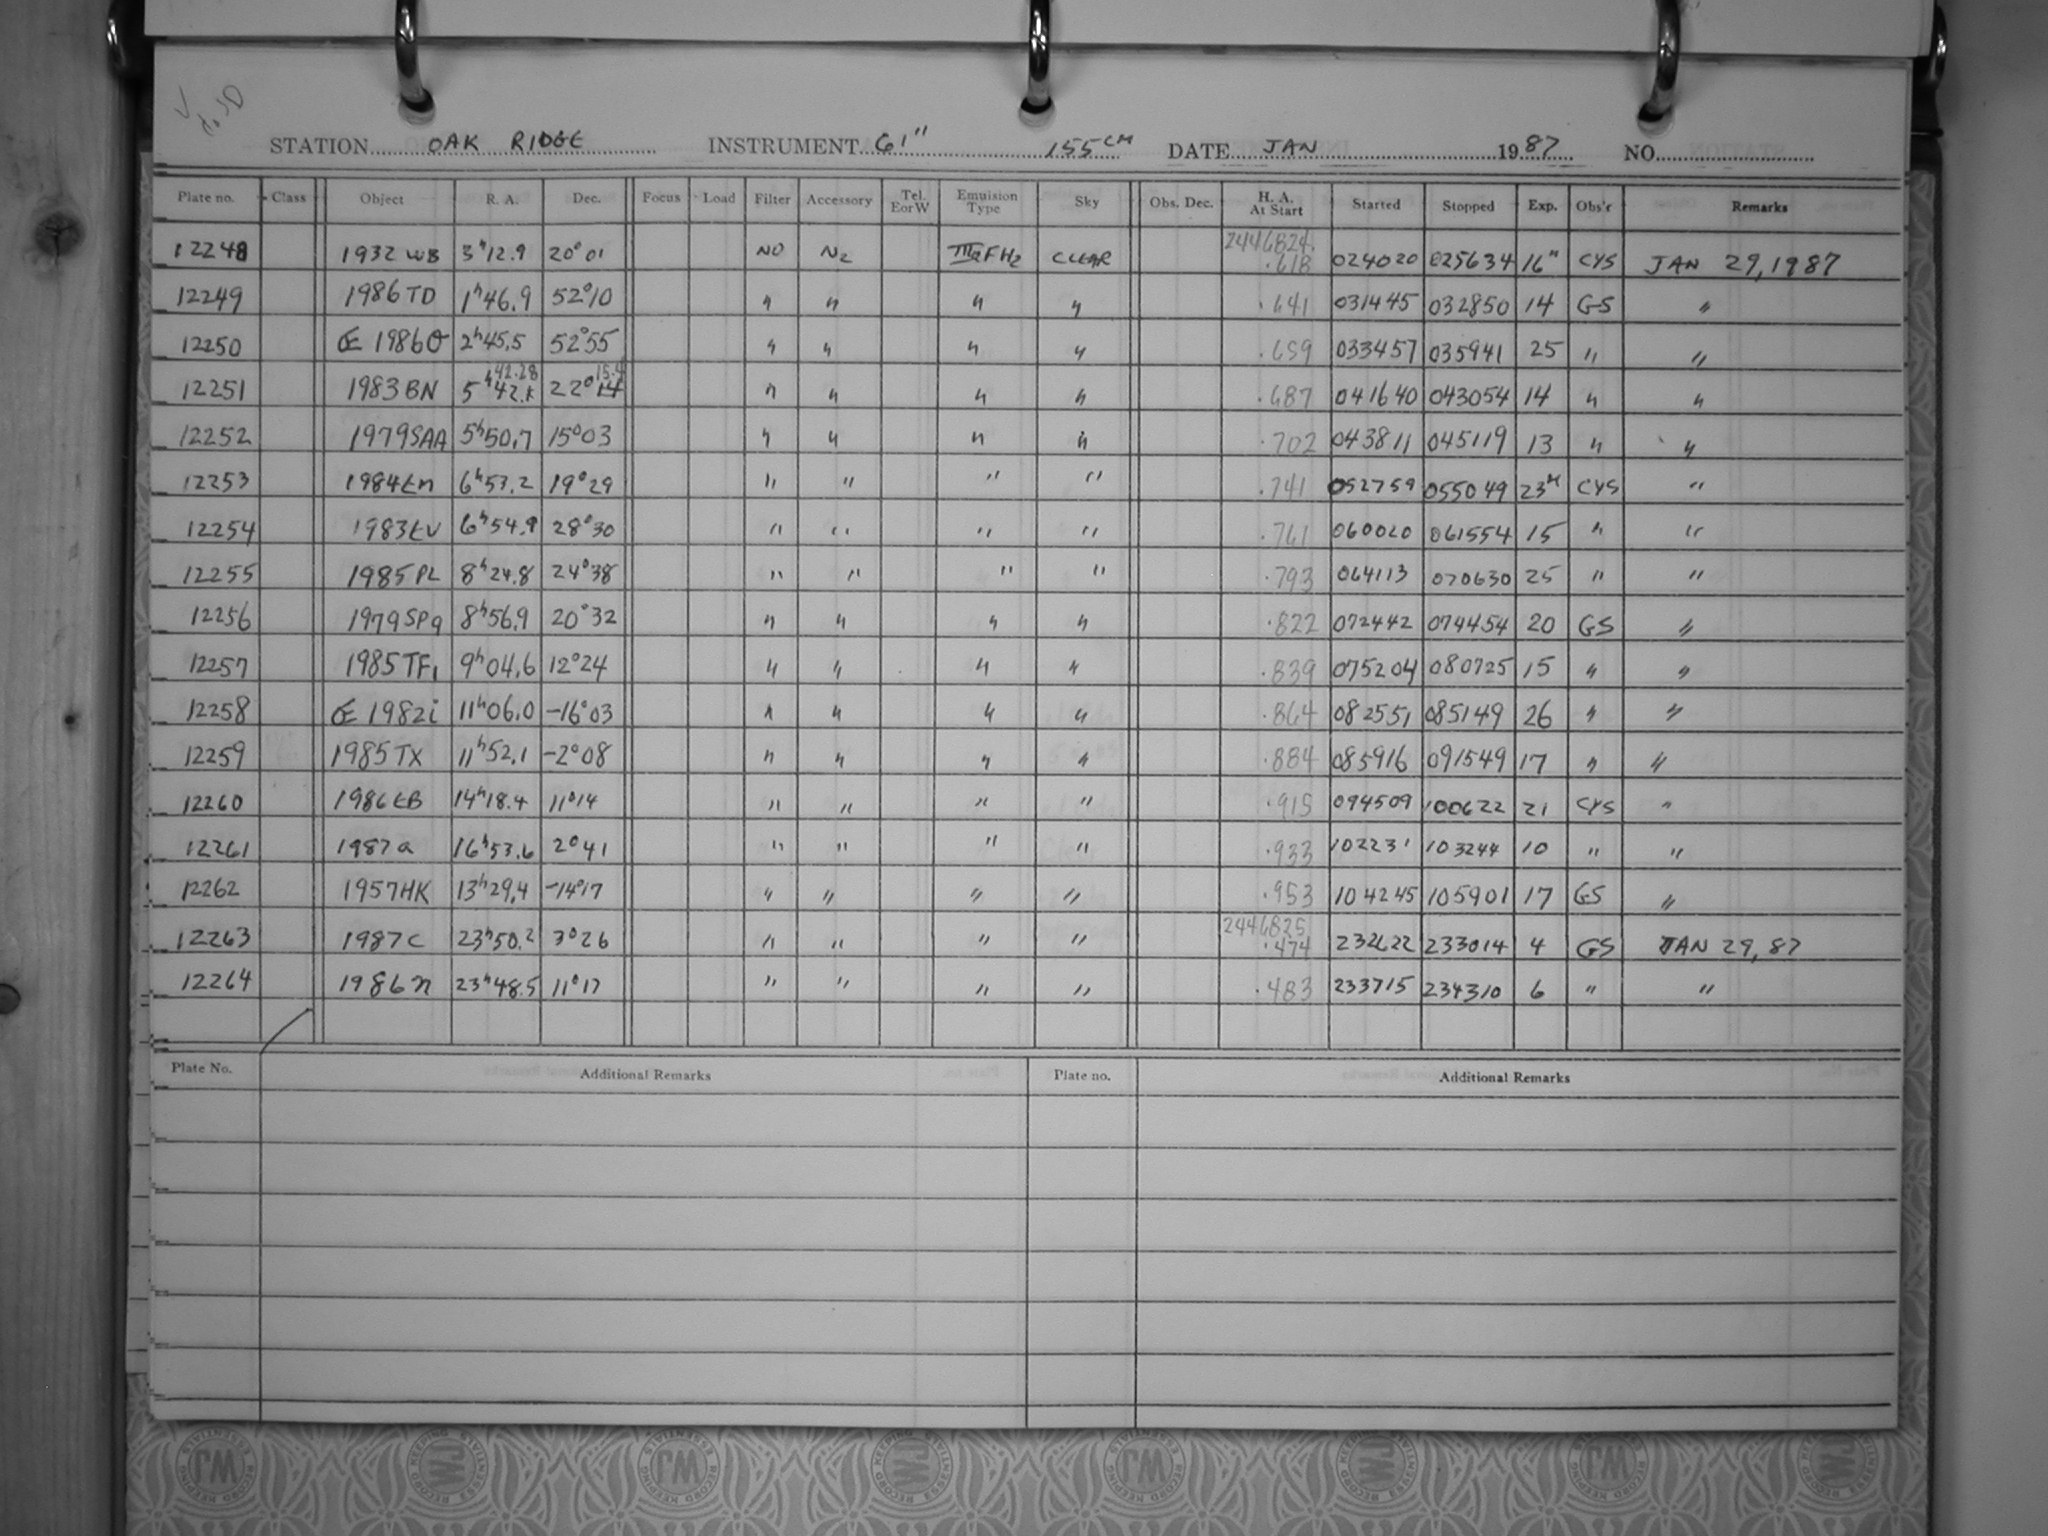 STATION OAK RIDGE INSTRUMENT 61" 155 CM DATE JAN 1987 NO.
Plate no. Class Object R. A. Dec. Focus Load Filter Accessory Tel. E or W Emulsion Type Sky Obs. Dec. H. A. At Start Started Stopped Exp. Obs'r Remarks
12248 1932 WB 3h12.9 20°01 NO N2 IIIaFH2 CLEAR 2446824. .618 024020 025634 16" CYS JAN 29, 1987
12249 1986 TD 1h46.9 52°10 " " " " .641 031445 032850 14 GS "
12250 1986 2h45.5 52°55 " " " " .659 033457 035941 25 " "
12251 1983 BN 5h42. 42.28 22°14 15.4 " " " " .687 041640 043054 14 " "
12252 1979 SAA 5h50.7 15°03 " " " " .702 043811 045119 13 " "
12253 1984 6h53.2 19°29 " " " " .741 052759 055049 23M CYS "
12254 1983 6h54.9 28°30 " " " " .761 060020 061554 15 " "
12255 1985 PL 8h24.8 24°38 " " " " .793 064113 070630 25 " "
12256 1979 SP9 8h56.9 20°32 " " " " .822 072442 074454 20 GS "
12257 1985 TF1 9h04.6 12°24 " " " " .839 075204 080725 15 " "
12258 1982i 11h06.0 -16°03 " " " " .864 082551 085149 26 " "
12259 1985 TX 11h52.1 -2°08 " " " " .884 085916 091549 17 " "
12260 1986 14h18.4 11°14 " " " " .915 094509 100622 21 CYS "
12261 1987a 16h53.6 2°41 " " " " .933 102231 103244 10 " "
12262 1957 HK 13h29.4 -14°17 " " " " .953 104245 105901 17 GS "
12263 1987c 23h50.2 3°26 " " " " 2446825 .474 232622 233014 4 GS JAN 29, 87
12264 1986n 23h48.5 11°17 " " " " .483 233715 234310 6 " "
Plate No. Additional Remarks Plate no. Additional Remarks